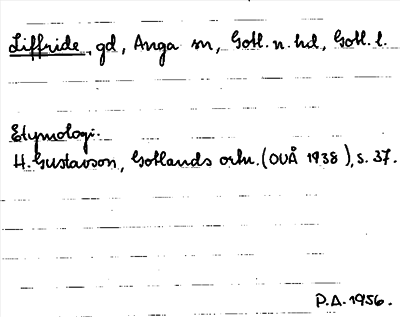 Liffride, gd, Anga sn, Gotl. n. hd, Gotl. l.
Etymologi.
H. Gustavson, Gotlands ortn. (OUÅ 1938), s. 37.
P.A. 1956.